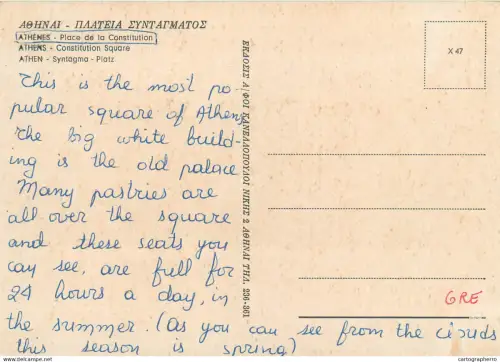 ΑΘΗΝΑΙ - ΠΛΑΤΕΙΑ ΣΥΝΤΑΓΜΑΤΟΣ
ATHENES - Place de la Constitution
ATHENS - Constitution Square
ATHEN - Syntagma - Platz
This is the most po-
pular square of Athens
the big white build-
ing is the old palace
Many pastries are
all over the square
and these seats you
cay see, are full for
24 hours a day, in
the summer. (As you can see from the clouds
this season is spring)
ΕΚΔΟΣΙΣ Α/ΦΟΙ ΚΑΝΕΛΛΟΠΟΥΛΟΙ ΝΙΚΗΣ 2 ΑΘΗΝΑΙ ΤΗΛ. 236-361
X 47
GRE
www.delcampe.net
cartographerro